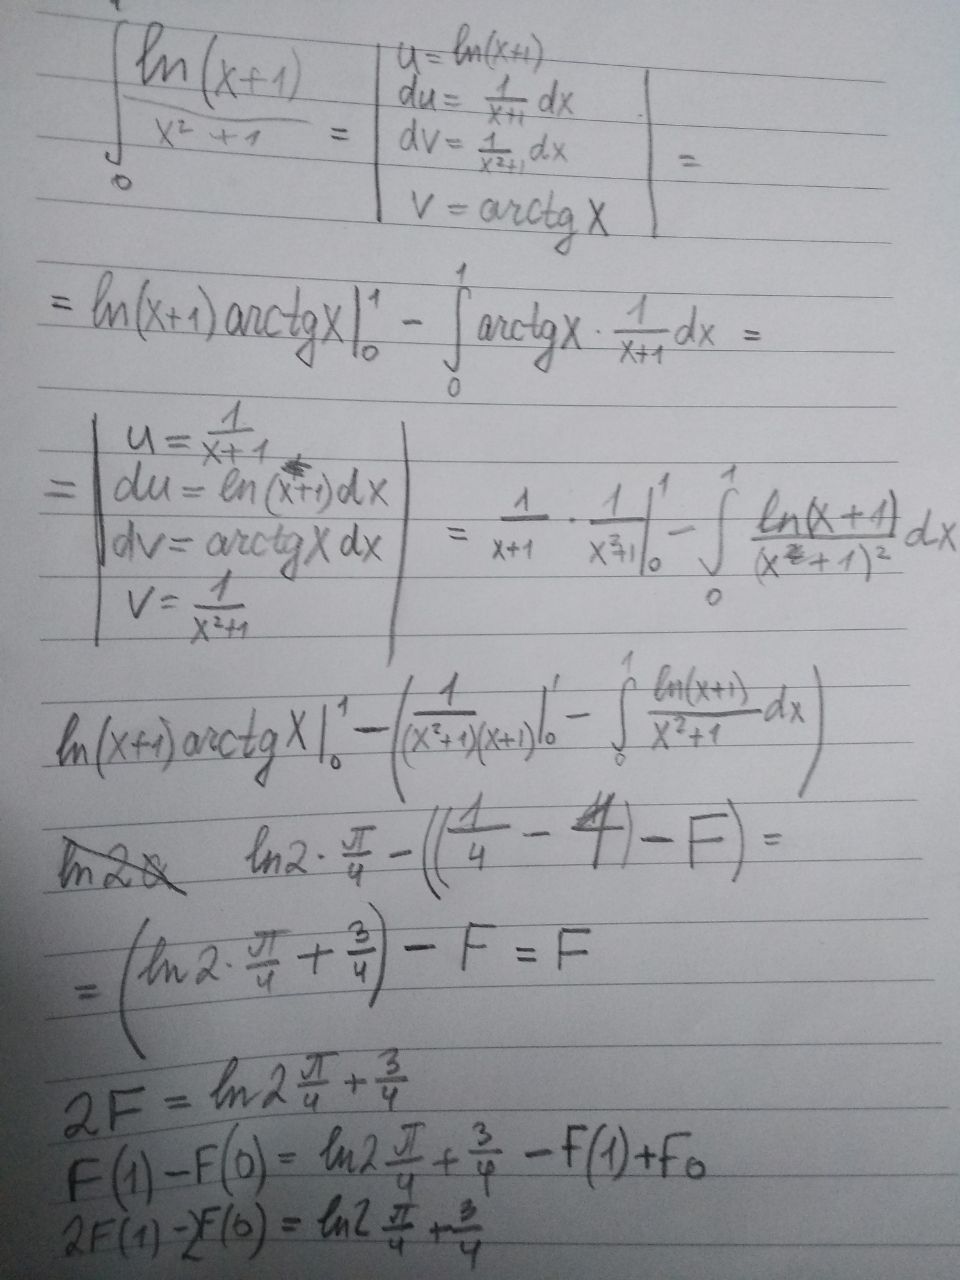 ∫₀¹ ln(x+1)/(x²+1) = | u = ln(x+1)
du = 1/(x+1) dx
dv = 1/(x²+1) dx
v = arctg x | =
= ln(x+1) arctg x |₀¹ − ∫₀¹ arctg x · 1/(x+1) dx =
= | u = 1/(x+1)
du = ln(x+1) dx
dv = arctg x dx
v = 1/(x²+1) | = 1/(x+1) · 1/(x²+1) |₀¹ − ∫₀¹ ln(x+1)/(x²+1)² dx
ln(x+1) arctg x |₀¹ − (1/((x²+1)(x+1)) |₀¹ − ∫₀¹ ln(x+1)/(x²+1) dx)
ln2 · π/4 − ((1/4 − 1) − F) =
= (ln2 · π/4 + 3/4) − F = F
2F = ln2 π/4 + 3/4
F(1) − F(0) = ln2 π/4 + 3/4 − F(1) + F₀
2F(1) − 2F(0) = ln2 π/4 + 3/4